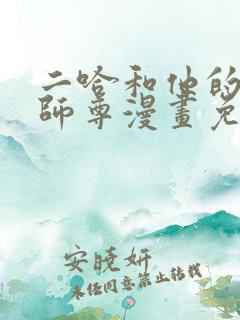 二哈和他的
師尊漫畫免
安曉妍
未经同意禁止转载